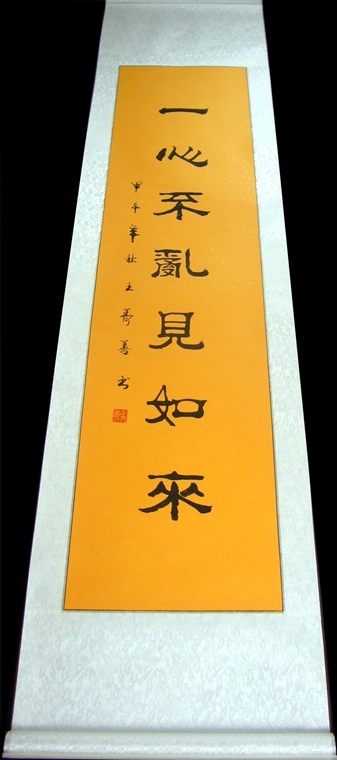 一心不亂見如來
甲午年秋王壽善書